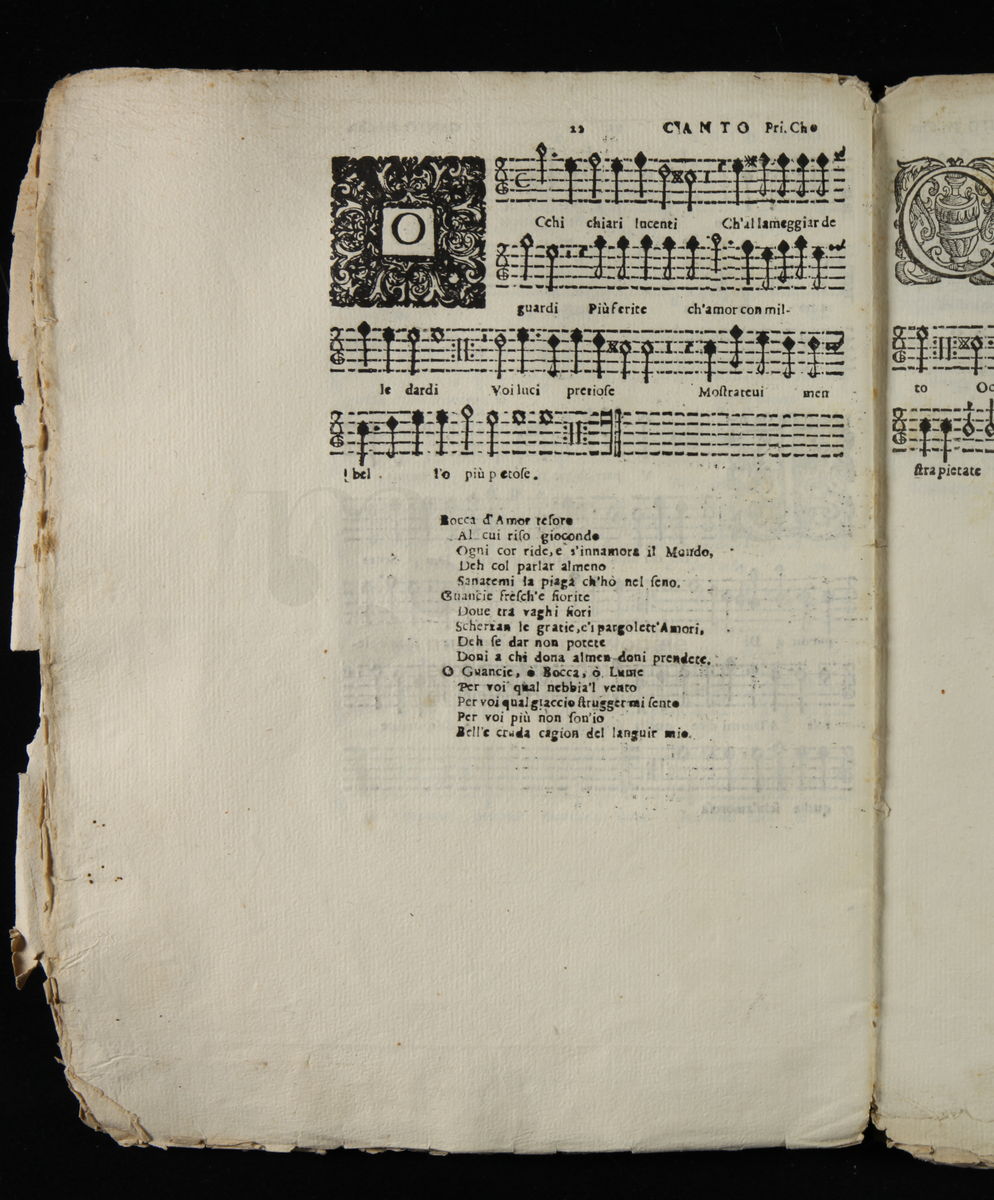 22 CANTO Pri. Cho
O
Cchi chiari lucenti Ch'al lameggiar de
guardi Più ferite ch'amor con mil-
le dardi Voi luci pretiose Mostrateui men
bel l'o più petose.
Bocca d'Amor tesoro
Al cui riso gioconde
Ogni cor ride, e s'innamora il Mondo,
Deh col parlar almeno
Sanatemi la piaga ch'hò nel seno.
Guancie fresch'e fiorite
Doue tra vaghi fiori
Scherzan le gratie, e'i pargolett'Amori,
Deh se dar non potete
Doni a chi dona almen doni prendete.
O Guancie, ò Bocca, ò Lume
Per voi qual nebbia'l vento
Per voi qual giaccio struggermi sento
Per voi più non son'io
Bell'e cruda cagion del languir mio.
to Oc
stra pietate